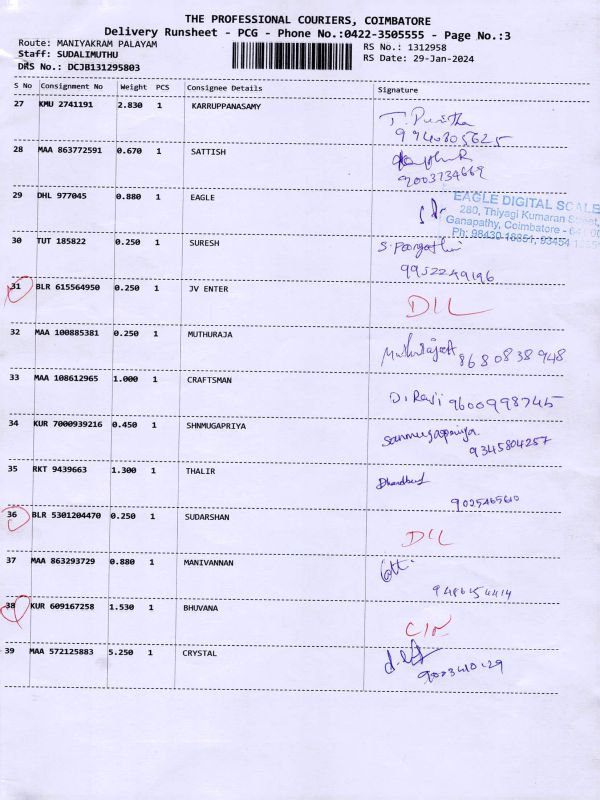 THE PROFESSIONAL COURIERS, COIMBATORE
Delivery Runsheet - PCG - Phone No.:0422-3505555 - Page No.:3
Route: MANIYAKRAM PALAYAM
RS No.: 1312958
Staff: SUDALIMUTHU
RS Date: 29-Jan-2024
DRS No.: DCJB131295803
S No Consignment No Weight PCS Consignee Details Signature
27 KMU 2741191 2.830 1 KARRUPPANASAMY
T. Punitha
9940805625
28 MAA 863772591 0.670 1 SATTISH
9003734669
29 DHL 977045 0.880 1 EAGLE
EAGLE DIGITAL SCALE
280, Thiyagi Kumaran Street,
Ganapathy, Coimbatore - 641 00
Ph: 98430 16351, 93454
30 TUT 185822 0.250 1 SURESH
S. Poongothai
9952249196
31 BLR 615564950 0.250 1 JV ENTER
DIL
32 MAA 100885381 0.250 1 MUTHURAJA
8680838948
33 MAA 108612965 1.000 1 CRAFTSMAN
D. Ravi 9600998745
34 KUR 7000939216 0.450 1 SHNMUGAPRIYA
Sanmugapriya
9345804257
35 RKT 9439663 1.300 1 THALIR
9025465610
36 BLR 5301204470 0.250 1 SUDARSHAN
DIL
37 MAA 863293729 0.880 1 MANIVANNAN
9486154414
38 KUR 609167258 1.530 1 BHUVANA
39 MAA 572125883 5.250 1 CRYSTAL